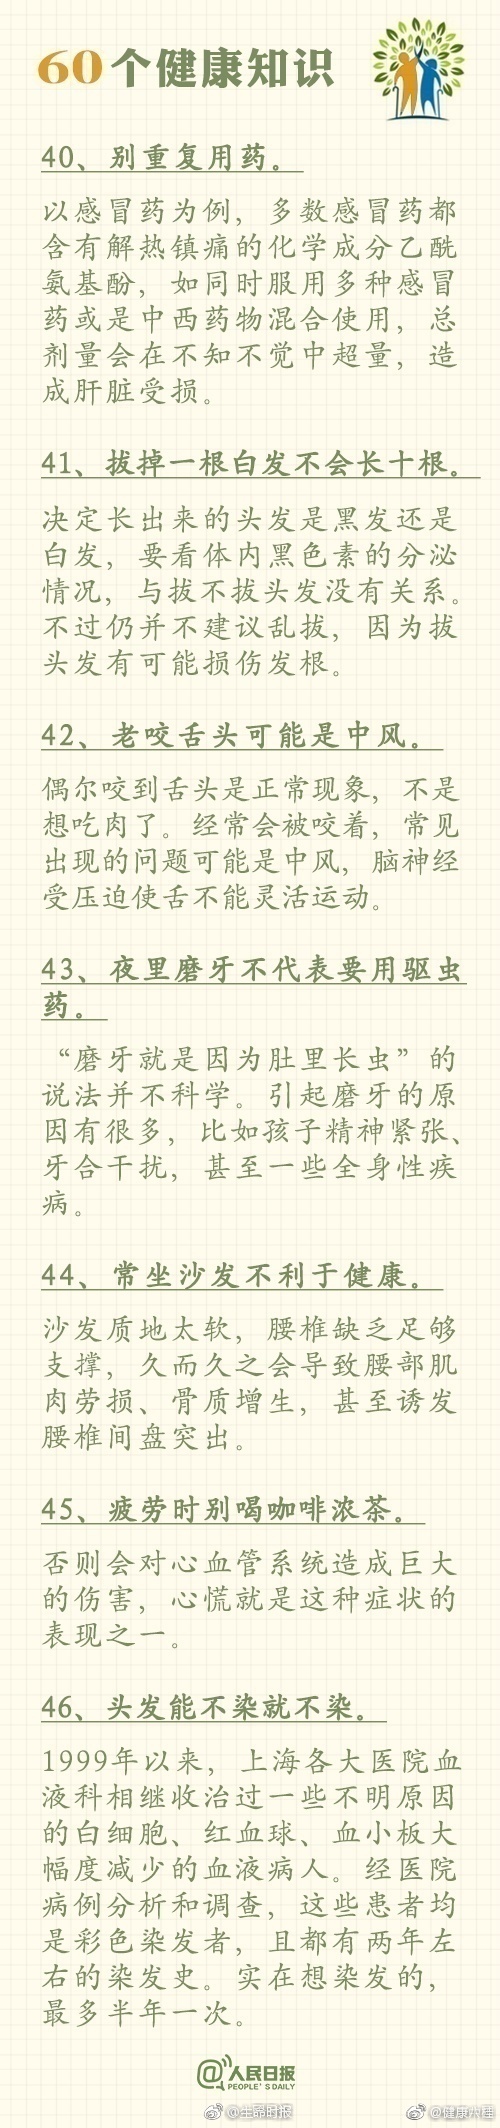 60个健康知识
40、别重复用药。
以感冒药为例，多数感冒药都
含有解热镇痛的化学成分乙酰
氨基酚，如同时服用多种感冒
药或是中西药物混合使用，总
剂量会在不知不觉中超量，造
成肝脏受损。
41、拔掉一根白发不会长十根。
决定长出来的头发是黑发还是
白发，要看体内黑色素的分泌
情况，与拔不拔头发没有关系。
不过仍并不建议乱拔，因为拔
头发有可能损伤发根。
42、老咬舌头可能是中风。
偶尔咬到舌头是正常现象，不是
想吃肉了。经常会被咬着，常见
出现的问题可能是中风，脑神经
受压迫使舌不能灵活运动。
43、夜里磨牙不代表要用驱虫
药。
“磨牙就是因为肚里长虫”的
说法并不科学。引起磨牙的原
因有很多，比如孩子精神紧张、
牙合干扰，甚至一些全身性疾
病。
44、常坐沙发不利于健康。
沙发质地太软，腰椎缺乏足够
支撑，久而久之会导致腰部肌
肉劳损、骨质增生，甚至诱发
腰椎间盘突出。
45、疲劳时别喝咖啡浓茶。
否则会对心血管系统造成巨大
的伤害，心慌就是这种症状的
表现之一。
46、头发能不染就不染。
1999年以来，上海各大医院血
液科相继收治过一些不明原因
的白细胞、红血球、血小板大
幅度减少的血液病人。经医院
病例分析和调查，这些患者均
是彩色染发者，且都有两年左
右的染发史。实在想染发的，
最多半年一次。
@人民日报
PEOPLE'S DAILY
@生命时报